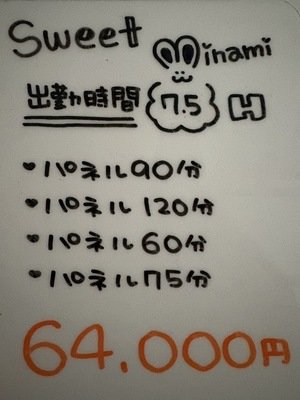 Sweet
Minami
出勤時間 7.5 H
♥パネル90分
♥パネル120分
♥パネル60分
♥パネル75分
64.000円